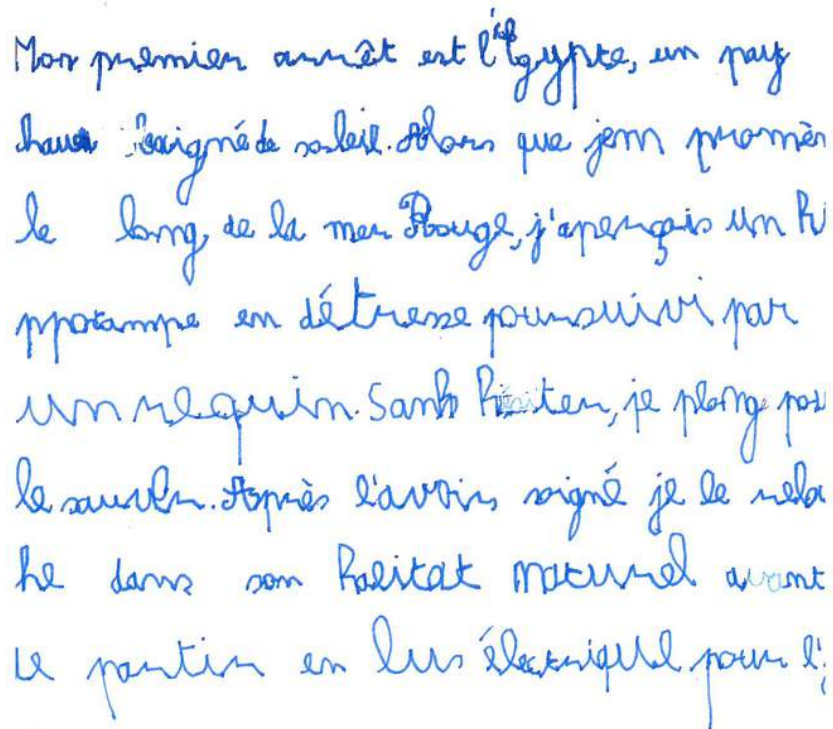 Mon premier arrêt est l'Égypte, un pay
baigné de soleil. Alors que jem promèn
le long de la mer Rouge, j'aperçois un hi
ppocampe en détresse poursuivi par
un requin. Sans hésiter, je plonge pou
le sauver. Après l'avoir soigné je le rela
he dans son habitat naturel avant
de partir en bus électrique pour l'